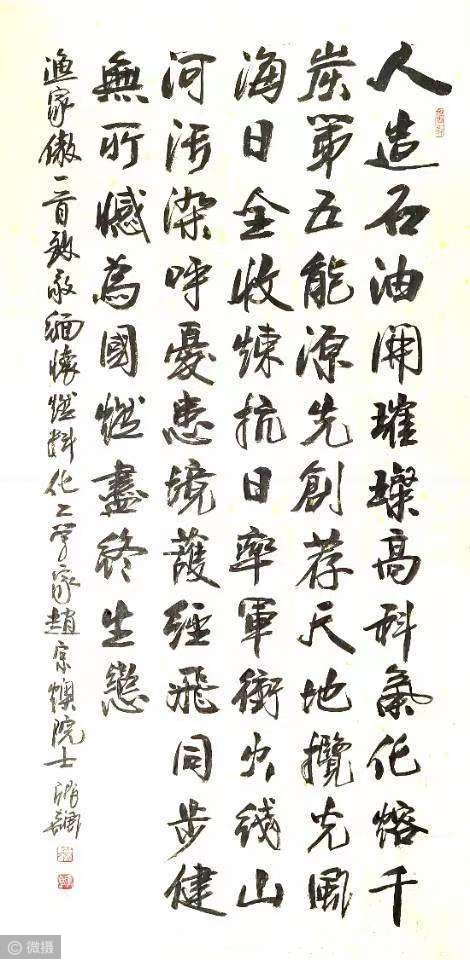 人造石油開璀璨高科氣化熔千
炭第五能源先創荐天地攬光風
海日全收煉抗日率軍衝火线山
河污染呼憂患境護經飛同步健
無所憾為國燃盡終生戀
漁家傲一首致敬緬懷燃料化工学家趙宗燠院士
微摄